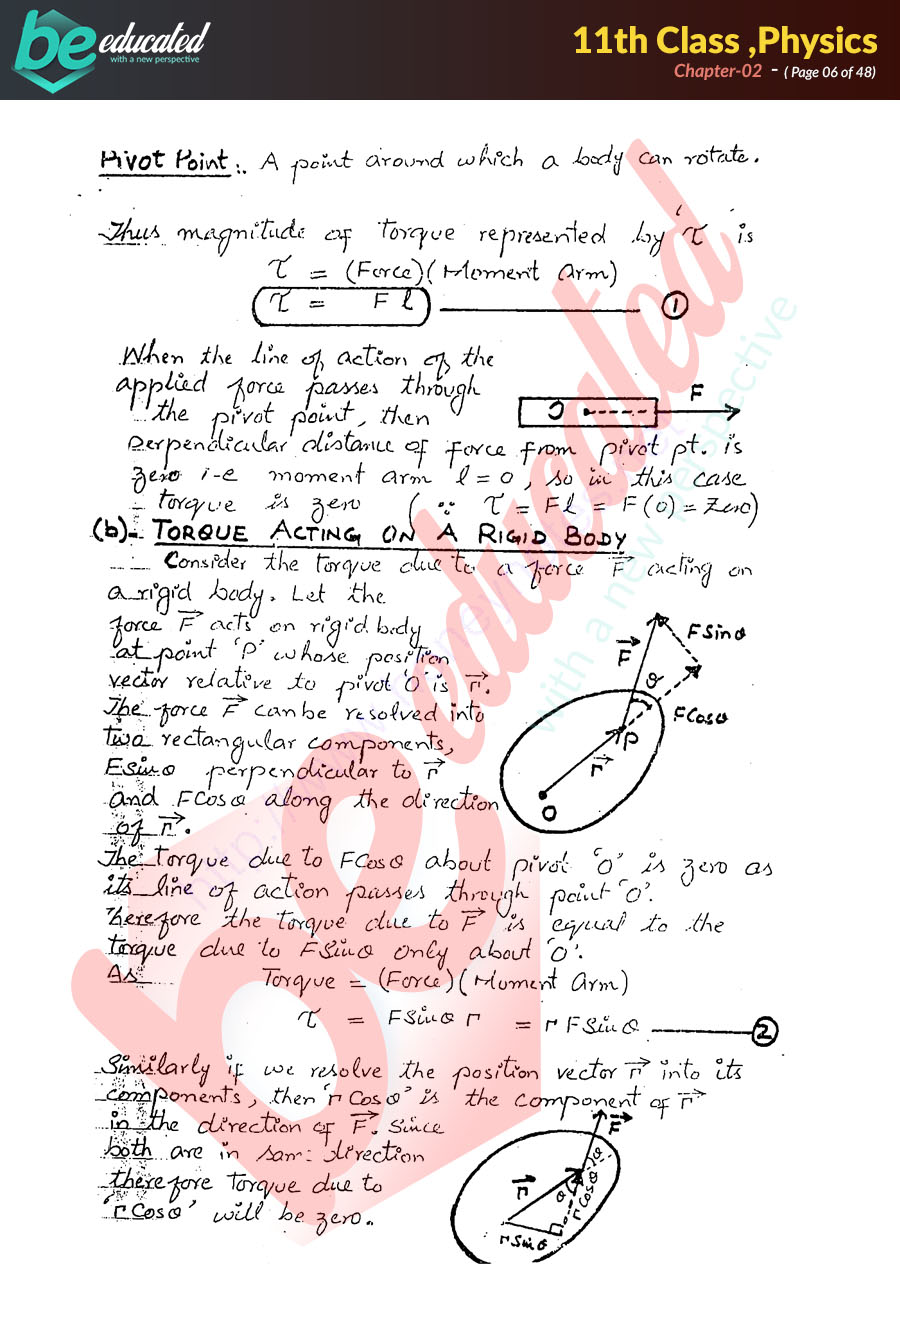 be educated
with a new perspective
11th Class ,Physics
Chapter-02 - ( Page 06 of 48)
Pivot Point:. A point around which a body can rotate.
Thus magnitude of torque represented by 'τ' is
τ = (Force)(Moment Arm)
τ = F l ——— ①
When the line of action of the
applied force passes through
the pivot point, then
O F
perpendicular distance of force from pivot pt. is
zero i-e moment arm l = 0, so in this case
torque is zero (∵ τ = Fl = F(0) = Zero)
(b)- TORQUE ACTING ON A RIGID BODY
Consider the torque due to a force F⃗ acting on
a rigid body. Let the
force F⃗ acts on rigid body
at point 'P' whose position
vector relative to pivot 'O' is r⃗.
The force F⃗ can be resolved into
two rectangular components,
FSinθ perpendicular to r⃗
and FCosθ along the direction
of r⃗.
F⃗ FSinθ
θ
FCosθ
P
r⃗
O
The torque due to FCosθ about pivot 'O' is zero as
its line of action passes through point 'O'.
Therefore the torque due to F⃗ is equal to the
torque due to FSinθ only about 'O'.
As Torque = (Force)(Moment Arm)
τ = FSinθ r = r FSinθ ——— ②
Similarly if we resolve the position vector r⃗ into its
components, then 'r Cosθ' is the component of r⃗
in the direction of F⃗. Since
both are in sam: direction
therefore torque due to
'r Cosθ' will be zero.
F⃗
θ
r⃗ θ rCosθ
rSinθ
be educated
with a new perspective